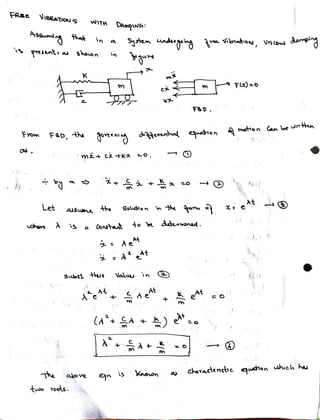 FREE VIBRATIONS WITH DAMPING:
Assuming that in a system undergoing free vibrations, viscous damping
is present as shown in figure
x
K
m
c
mẍ
cẋ
kx
m
F(t)=0
FBD.
From FBD, the governing differential equation of motion can be written
as.
mẍ + cẋ + kx = 0. → ①
÷ by m ⇒ ẍ + c/m ẋ + k/m x = 0 → ②
Let assume the solution in the form of x = e^λt → ③
where λ is a constant to be determined.
ẋ = λe^λt
ẍ = λ² e^λt
subst these values in ②
λ² e^λt + c/m λ e^λt + k/m e^λt = 0
(λ² + c/m λ + k/m) e^λt = 0
λ² + c/m λ + k/m = 0 → ④
The above eqn is known as characteristic equation which has
two roots.